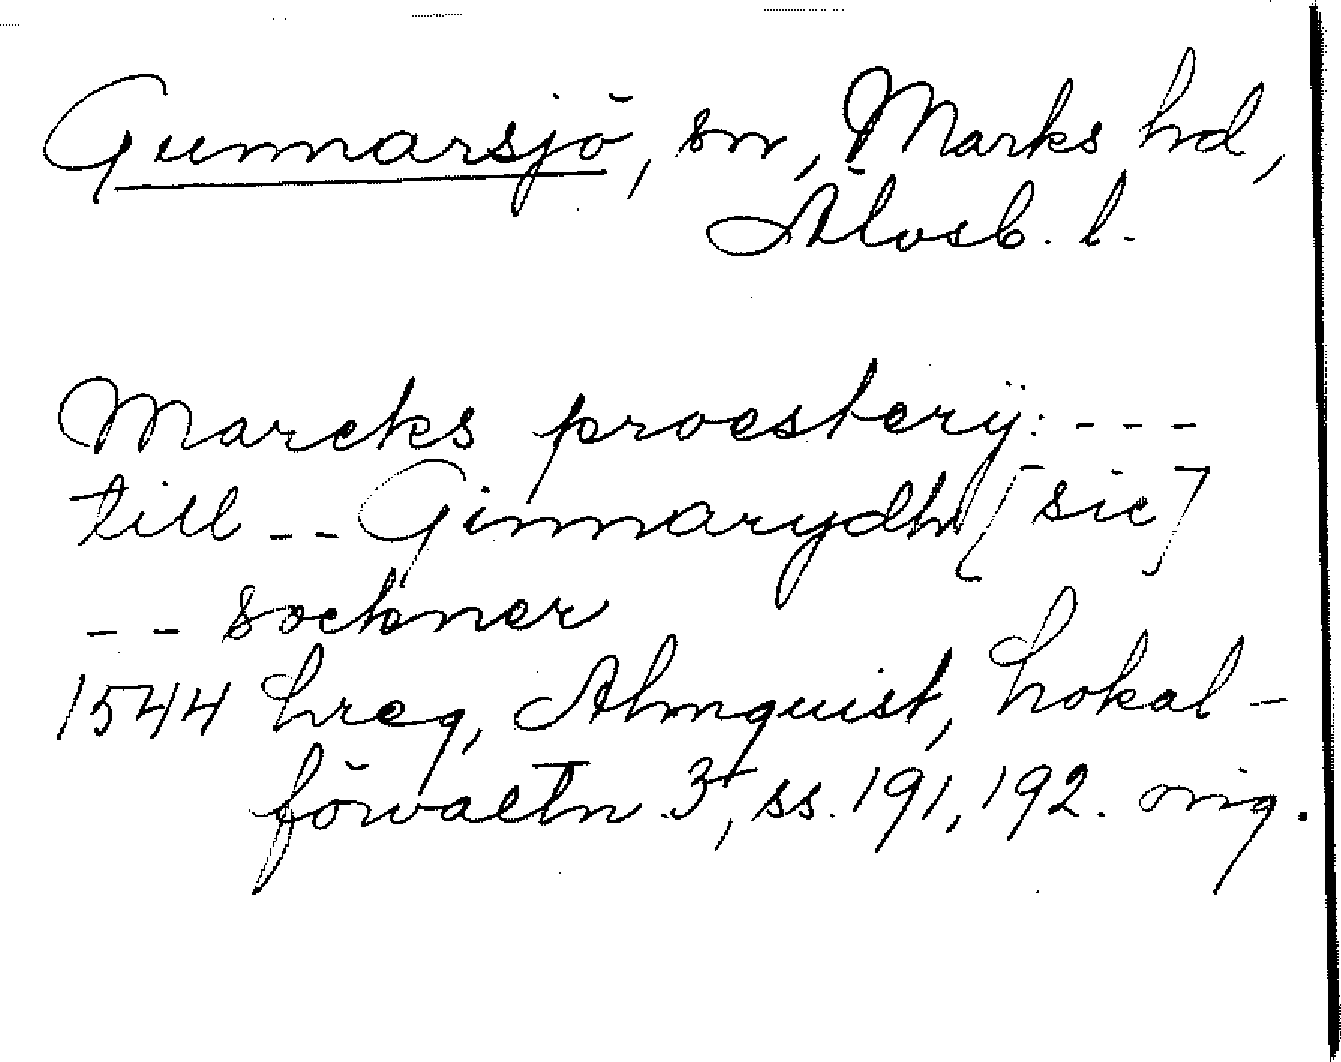 Gunnarsjö, sn, Marks hd,
Älvsb. l.
Marcks proestery: ---
till -- Ginnarydh [sic]
-- sockner
1544 Lreg, Almquist, Lokal-
förvaltn 3, ss. 191, 192. orig.